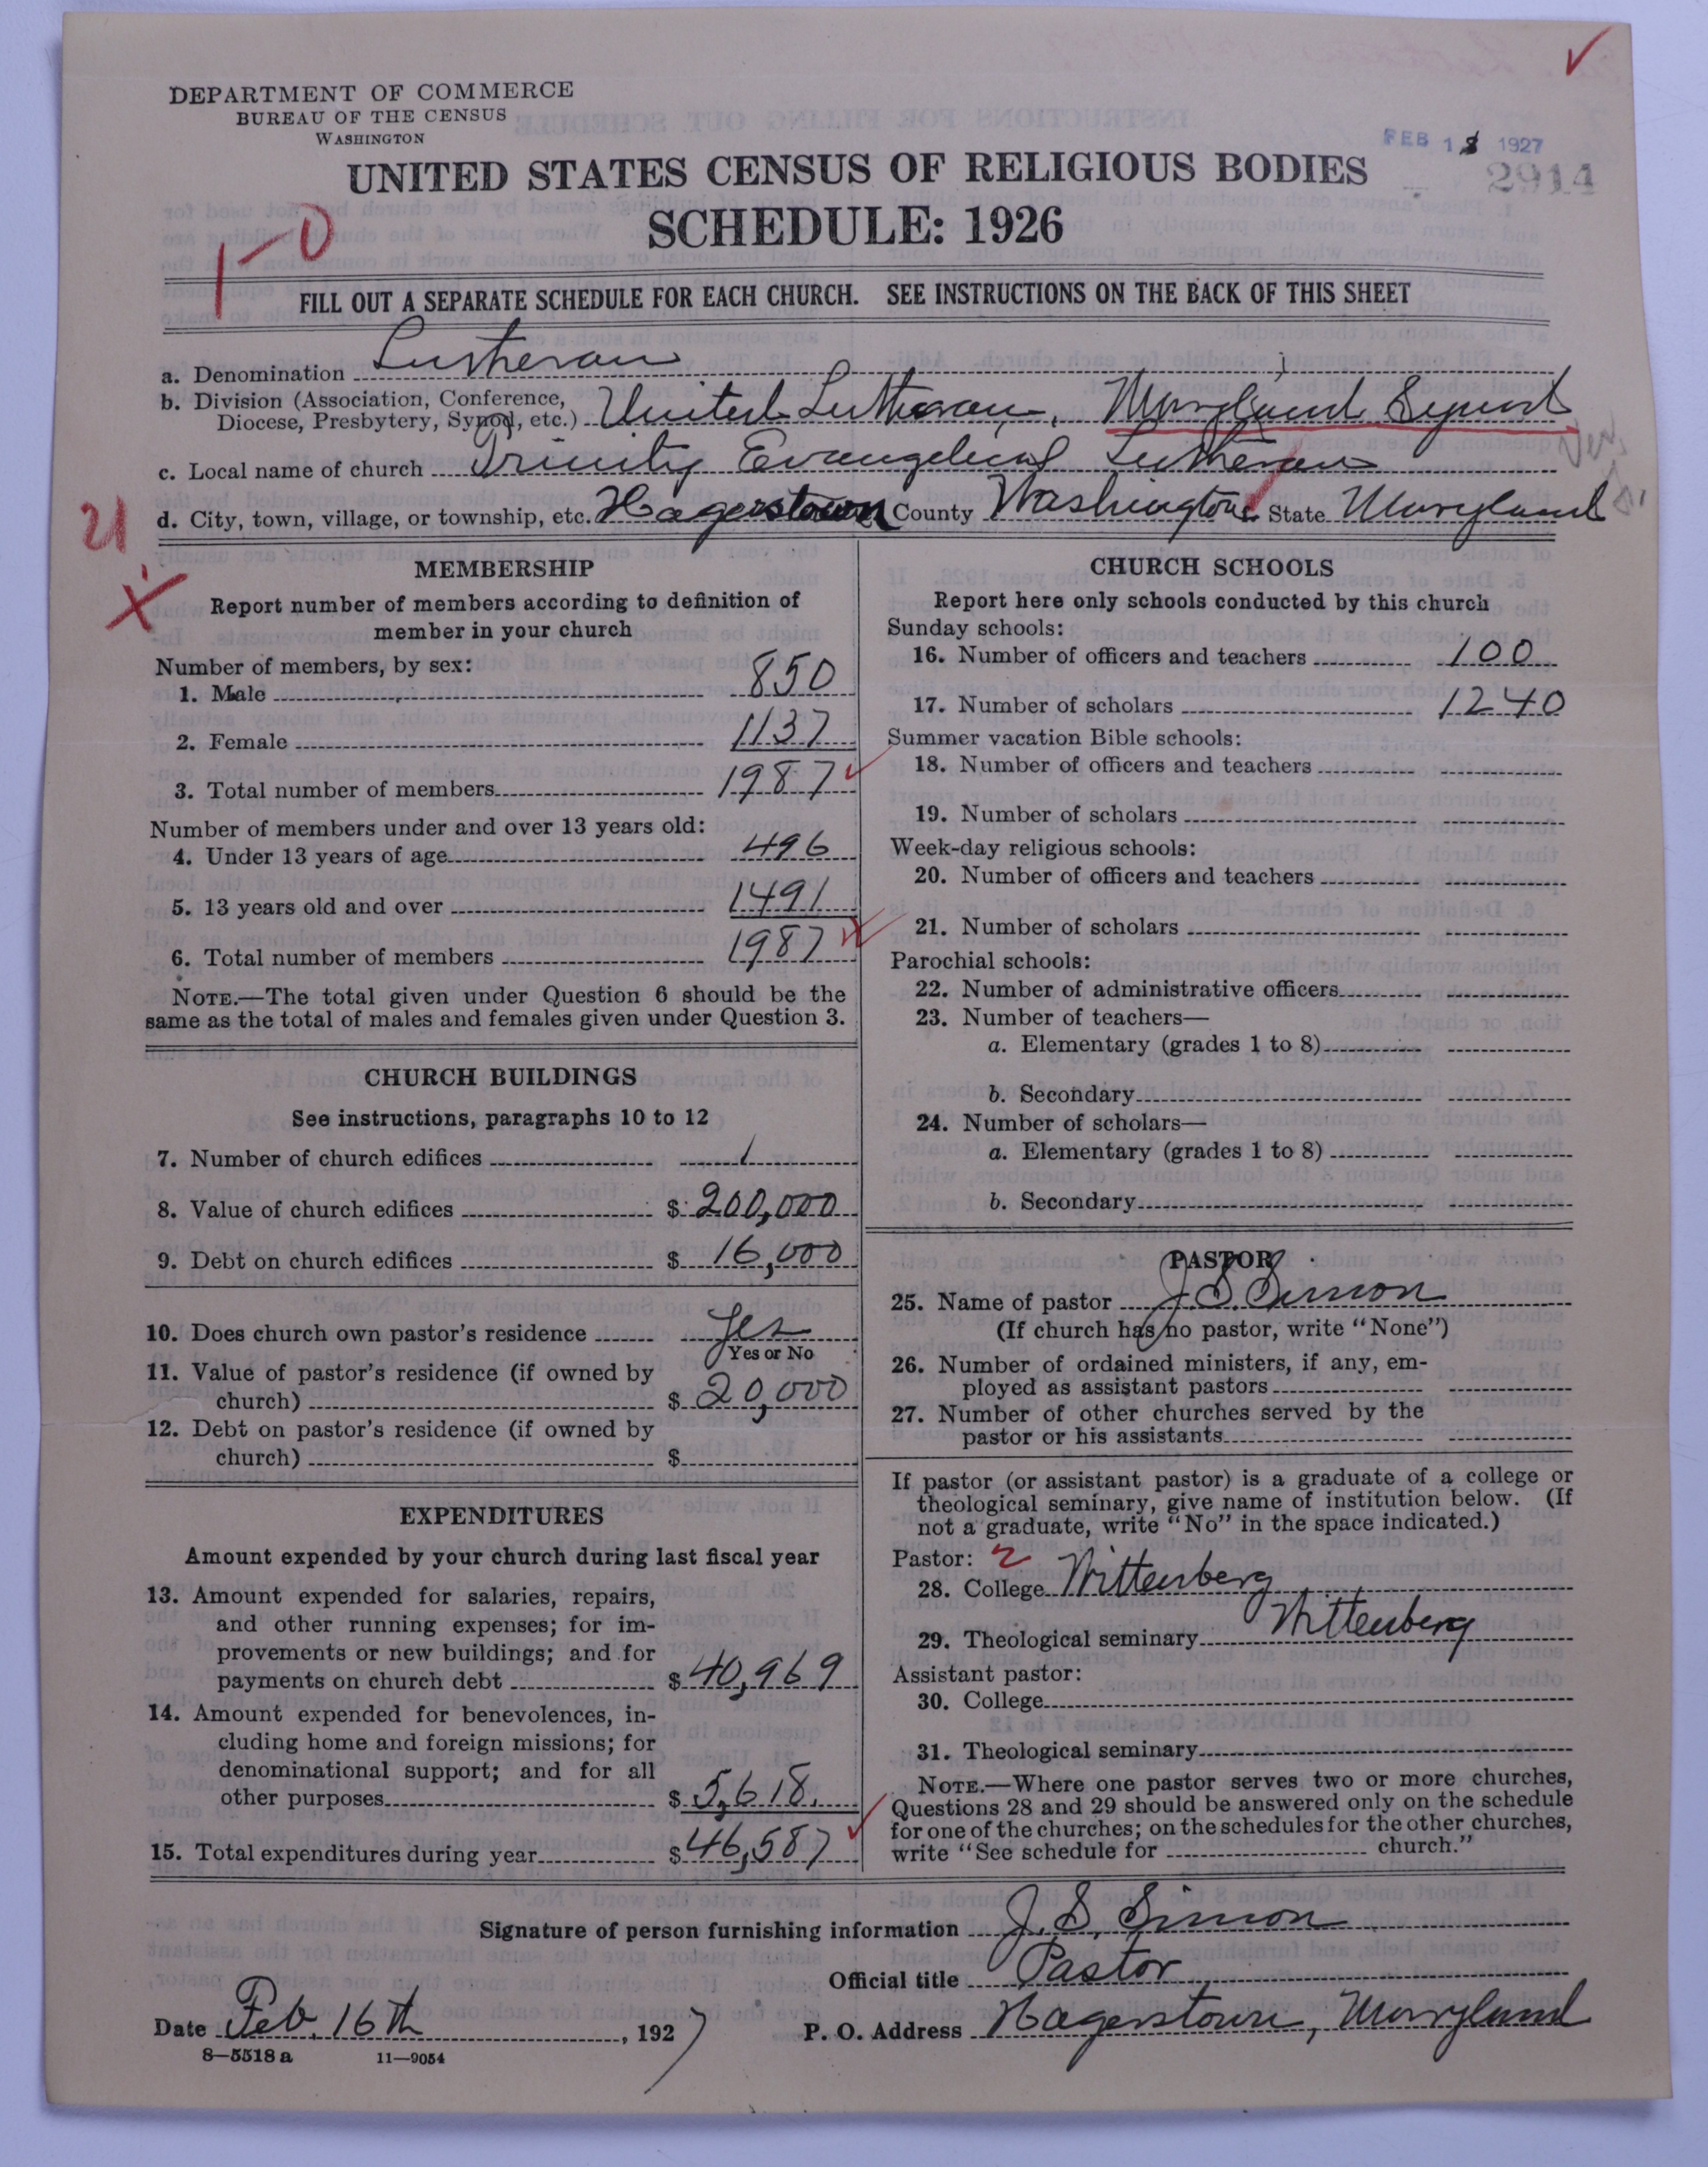 DEPARTMENT OF COMMERCE
BUREAU OF THE CENSUS
WASHINGTON
FEB 18 1927
2914
UNITED STATES CENSUS OF RELIGIOUS BODIES
SCHEDULE: 1926
1-0
FILL OUT A SEPARATE SCHEDULE FOR EACH CHURCH. SEE INSTRUCTIONS ON THE BACK OF THIS SHEET
a. Denomination Lutheran
b. Division (Association, Conference, Diocese, Presbytery, Synod, etc.) United Lutheran, Maryland Synod
c. Local name of church Trinity Evangelical Lutheran
d. City, town, village, or township, etc. Hagerstown County Washington State Maryland
21
MEMBERSHIP
Report number of members according to definition of
member in your church
Number of members, by sex:
1. Male 850
2. Female 1137
3. Total number of members 1987
Number of members under and over 13 years old:
4. Under 13 years of age 496
5. 13 years old and over 1491
6. Total number of members 1987
NOTE.—The total given under Question 6 should be the
same as the total of males and females given under Question 3.
CHURCH BUILDINGS
See instructions, paragraphs 10 to 12
7. Number of church edifices 1
8. Value of church edifices $ 200,000
9. Debt on church edifices $ 16,000
10. Does church own pastor's residence Yes
Yes or No
11. Value of pastor's residence (if owned by
church) $ 20,000
12. Debt on pastor's residence (if owned by
church) $
EXPENDITURES
Amount expended by your church during last fiscal year
13. Amount expended for salaries, repairs,
and other running expenses; for im-
provements or new buildings; and for
payments on church debt $ 40,969
14. Amount expended for benevolences, in-
cluding home and foreign missions; for
denominational support; and for all
other purposes $ 5,618.
15. Total expenditures during year $ 46,587
CHURCH SCHOOLS
Report here only schools conducted by this church
Sunday schools:
16. Number of officers and teachers 100
17. Number of scholars 1240
Summer vacation Bible schools:
18. Number of officers and teachers
19. Number of scholars
Week-day religious schools:
20. Number of officers and teachers
21. Number of scholars
Parochial schools:
22. Number of administrative officers
23. Number of teachers—
a. Elementary (grades 1 to 8)
b. Secondary
24. Number of scholars—
a. Elementary (grades 1 to 8)
b. Secondary
PASTOR
25. Name of pastor J. S. Simon
(If church has no pastor, write "None")
26. Number of ordained ministers, if any, em-
ployed as assistant pastors
27. Number of other churches served by the
pastor or his assistants
If pastor (or assistant pastor) is a graduate of a college or
theological seminary, give name of institution below. (If
not a graduate, write "No" in the space indicated.)
Pastor: 2
28. College Wittenberg
29. Theological seminary Wittenberg
Assistant pastor:
30. College
31. Theological seminary
NOTE.—Where one pastor serves two or more churches,
Questions 28 and 29 should be answered only on the schedule
for one of the churches; on the schedules for the other churches,
write "See schedule for church."
Signature of person furnishing information J. S. Simon
Official title Pastor
Date Feb. 16th, 1927 P. O. Address Hagerstown, Maryland
8—5518 a 11—9054